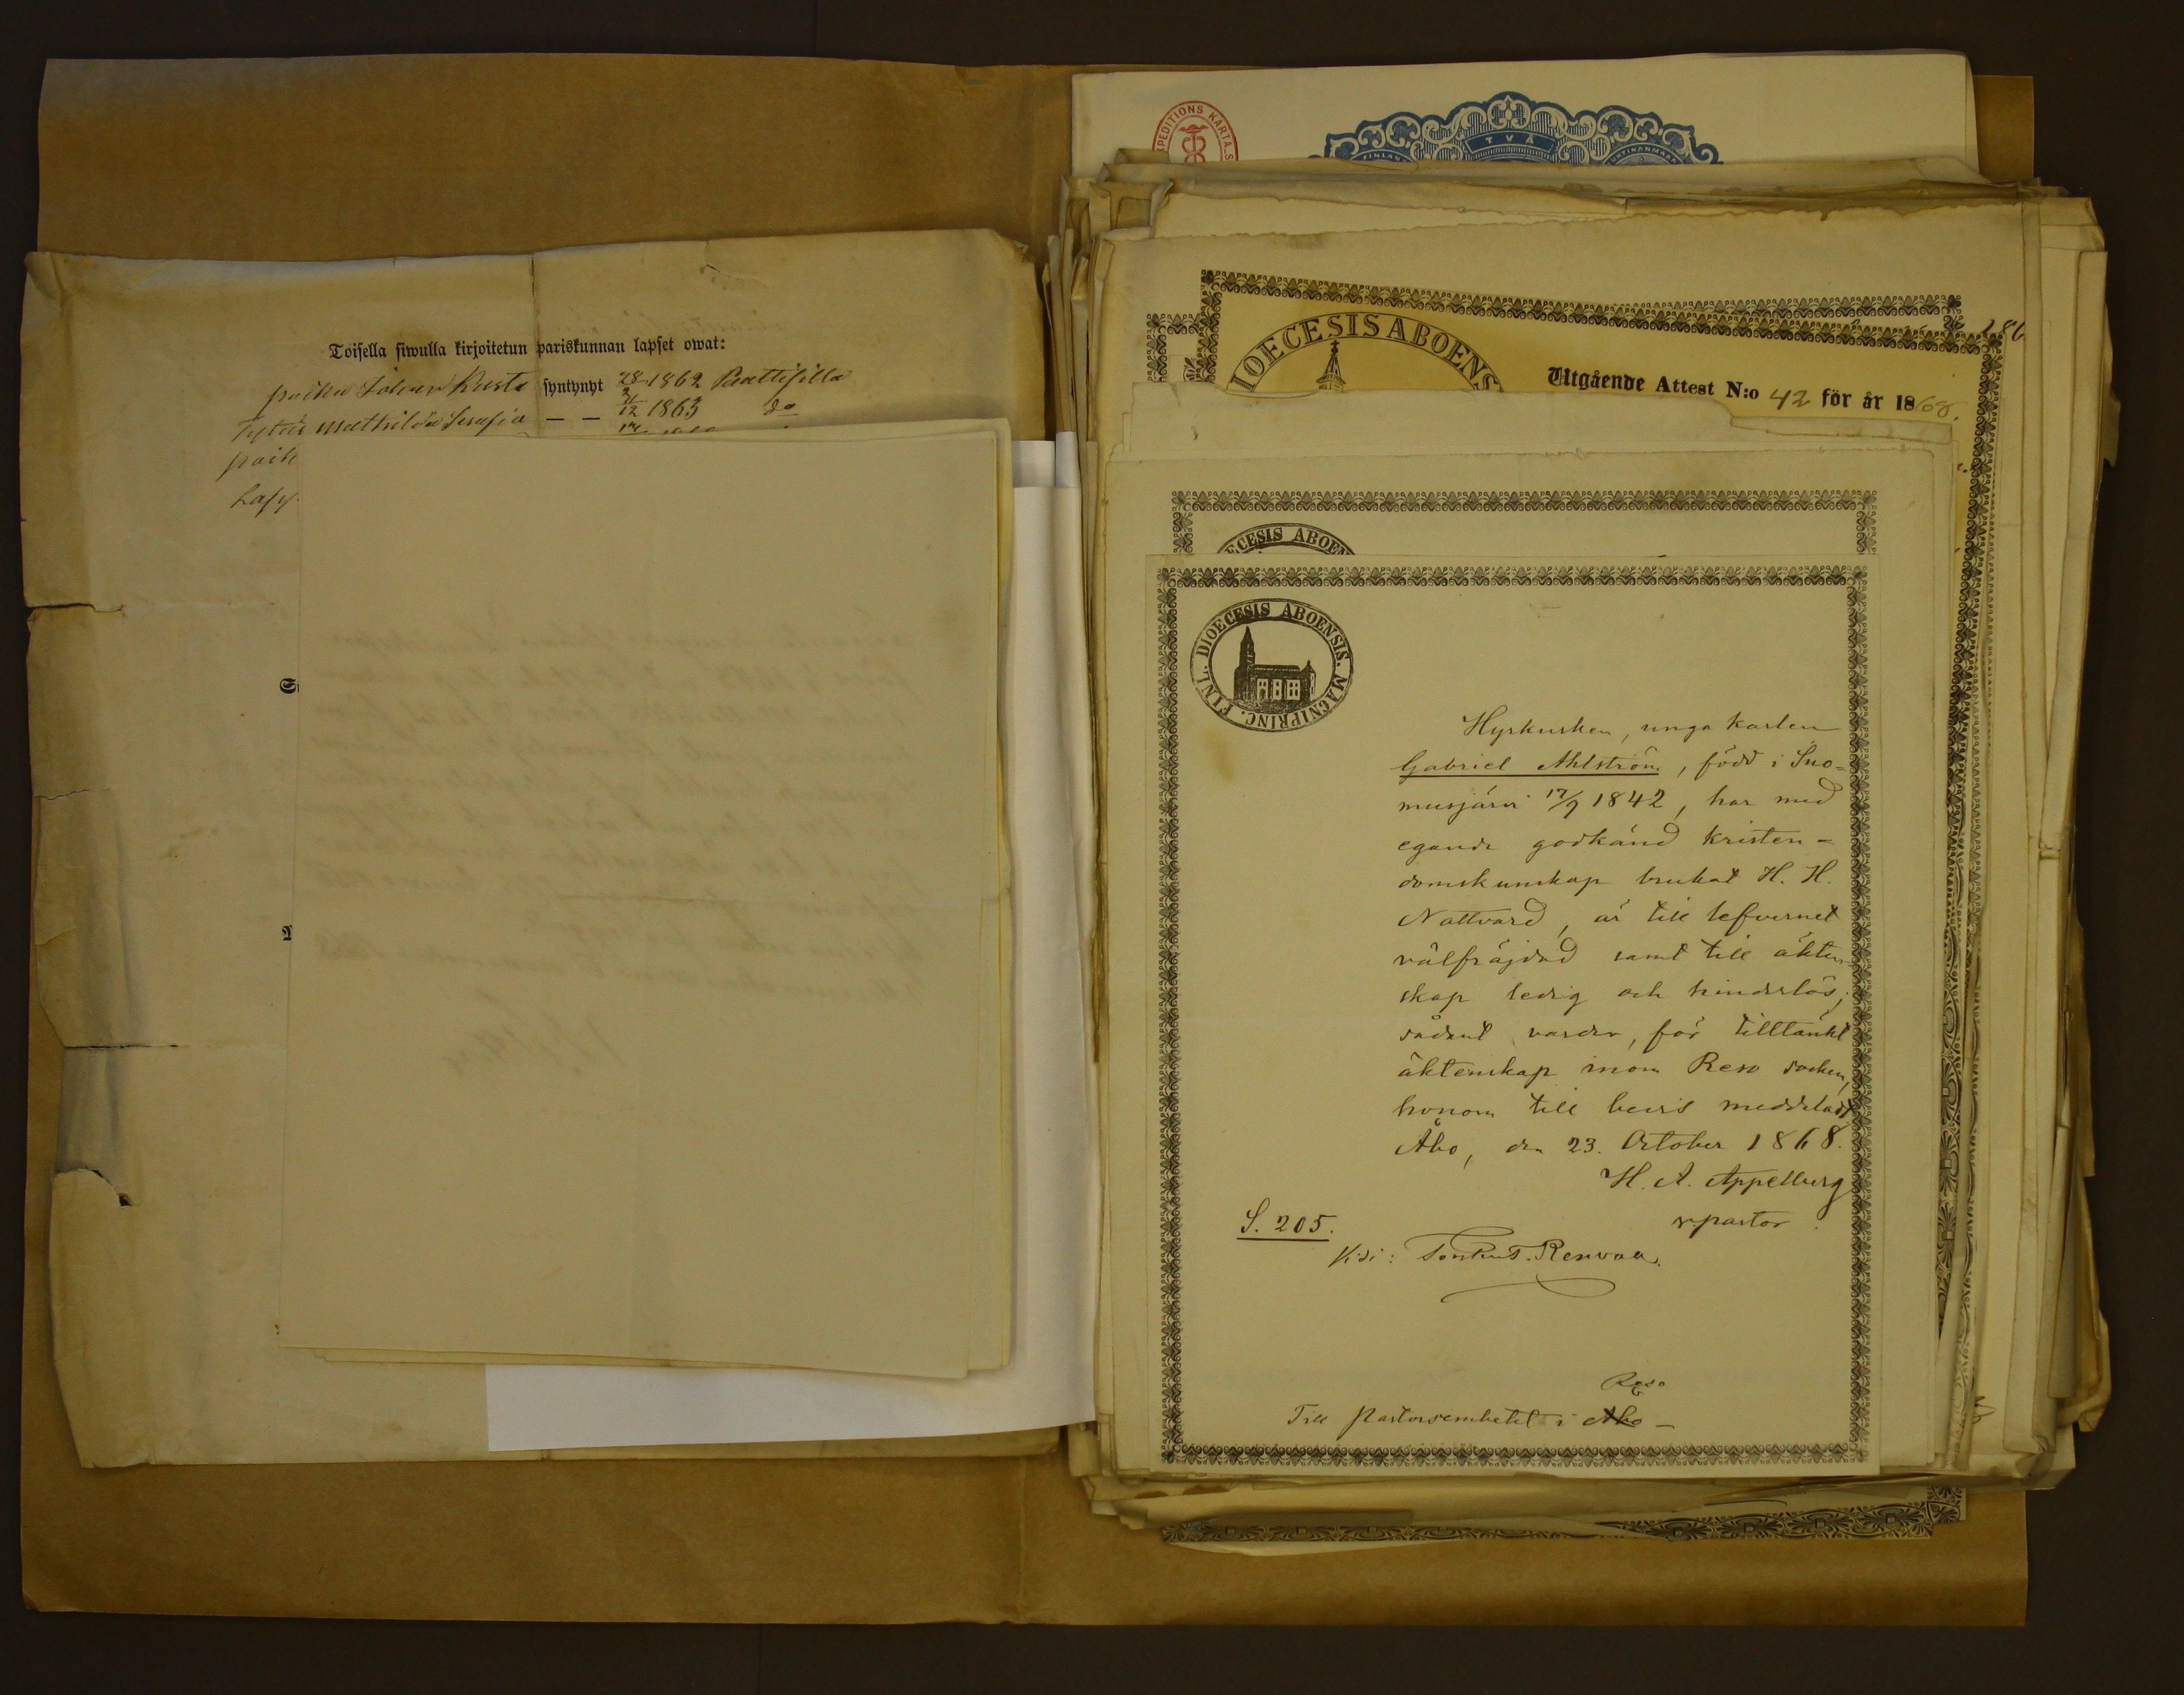 Toisella siwulla kirjoitetun pariskunnan lapset owat:
poika Johan Kusta syntynyt 28/2 1862 Paattisilla
Tytär Mathilda Serafia — — 11/12 1863 do
poik
Laps
PEDITIONS KARTA.S
TVÅ
FINLAN
IOECESIS ABOENS
186
Utgående Attest N:o 42 för år 1868.
ECESIS ABOEN
FINL. DIOECESIS ABOENSIS. MAGNIPRINC.
Hyrkusken, unga karlen
Gabriel Ahlström, född i Suo-
musjärvi 17/9 1842, har med
egande godkänd kristen-
domskunskap brukat H. H.
Nattvard, är till lefvernet
välfräjdad samt till äkten-
skap ledig och hinderlös;
sådant varder, för tilltänkt
äktenskap inom Reso socken,
honom till bevis meddeladt
Åbo, den 23. October 1868.
H. A. Appelberg
v pastor.
S. 205.
Vidi: Renvall.
Reso
Till Pastorsembetet i Åbo —